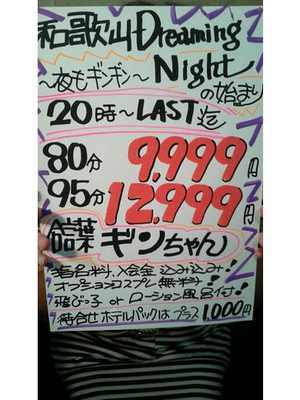 和歌山Dreaming
〜夜もギンギン〜 Night
の始まり
20時〜LAST迄
80分 9,999円
95分 12,999円
合言葉 ギンちゃん
指名料、入会金 込み込み!
オプションコスプレ無料!
飛びっ子 or ローション風呂付!
待合せ ホテルパックは プラス 1,000円